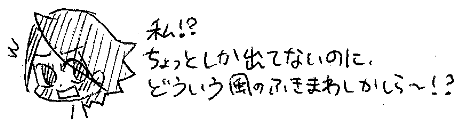 私!?
ちょっとしか出てないのに、
どういう風のふきまわしかしら～!?